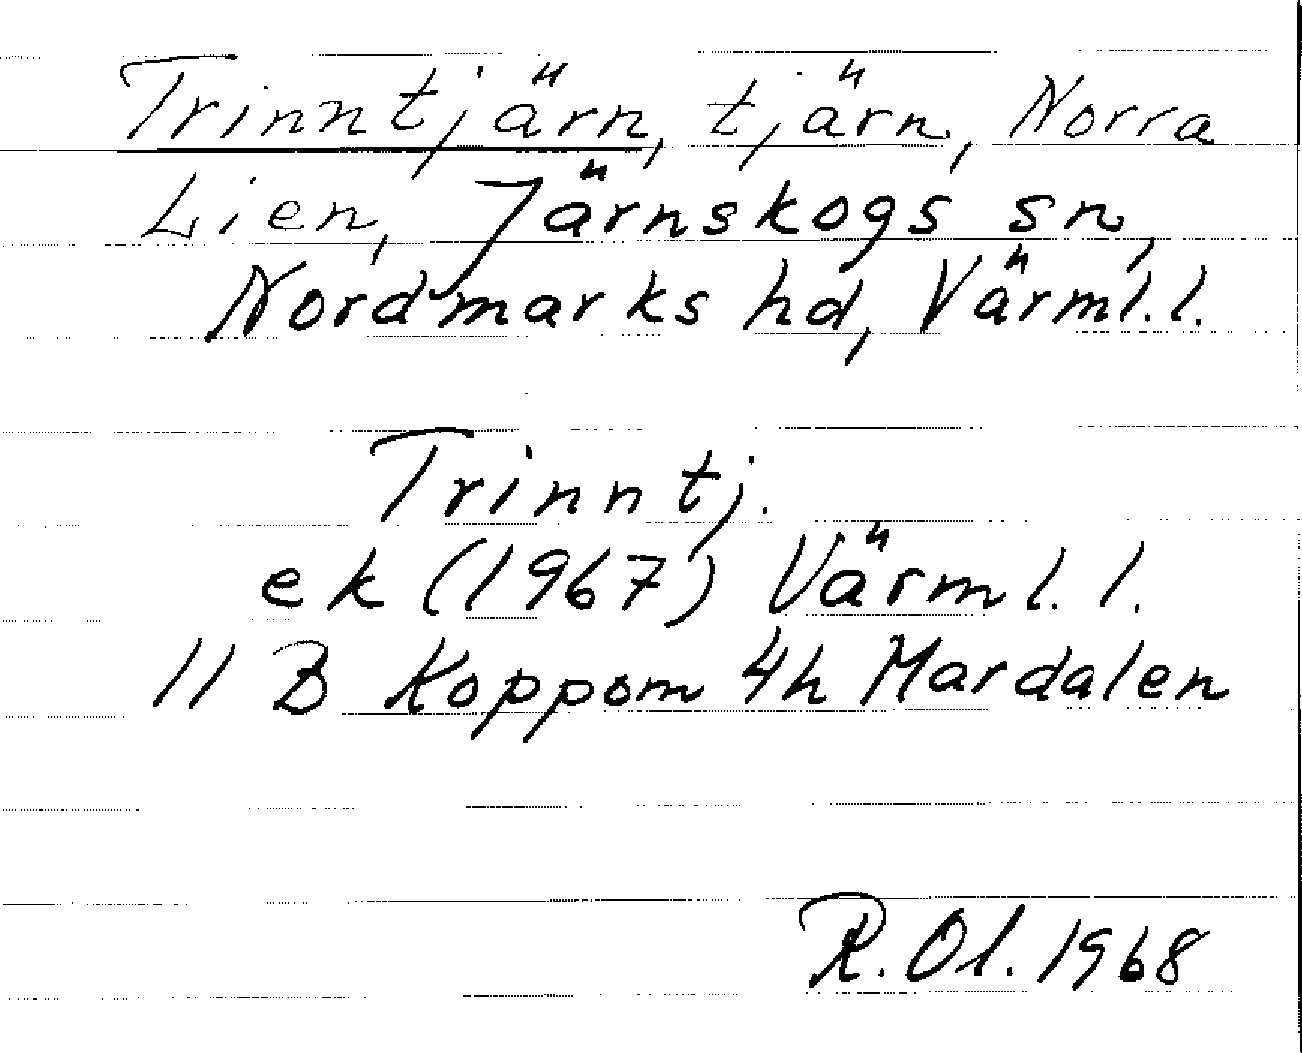 Trinntjärn, tjärn, Norra
Lien, Järnskogs sn,
Nordmarks hd, Värml. l.
Trinntj.
ek (1967) Värml. l.
11 B Koppom 4h Mardalen
R. Ol. 1968